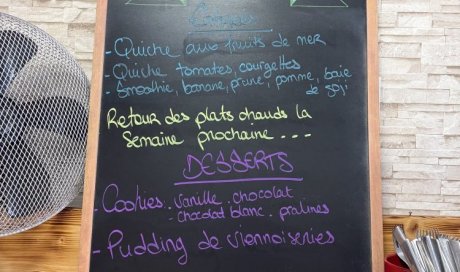 - Quiche aux fruits de mer
- Quiche tomates, courgettes
- Smoothie, banane, prune, pomme, baie
de goji
Retour des plats chauds la
semaine prochaine...
DESSERTS
- Cookies. vanille. chocolat
- chocolat blanc. pralines
- Pudding de viennoiseries